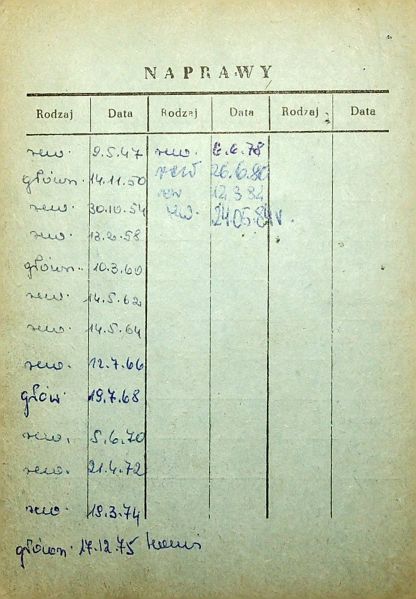 NAPRAWY
Rodzaj Data Rodzaj Data Rodzaj Data
rew. 9.5.47 rew. 2.6.78
główn. 14.11.50 rew 26.6.80
rew. 30.10.54 rew 12.3.82
rew. 13.2.58 rew. 24.05.84r.
główn. 10.3.60
rew. 14.5.62
rew. 14.5.64
rew. 12.7.66
głów. 19.7.68
rew. 5.6.70
rew. 21.4.72
rew. 19.3.74
główn. 17.12.75